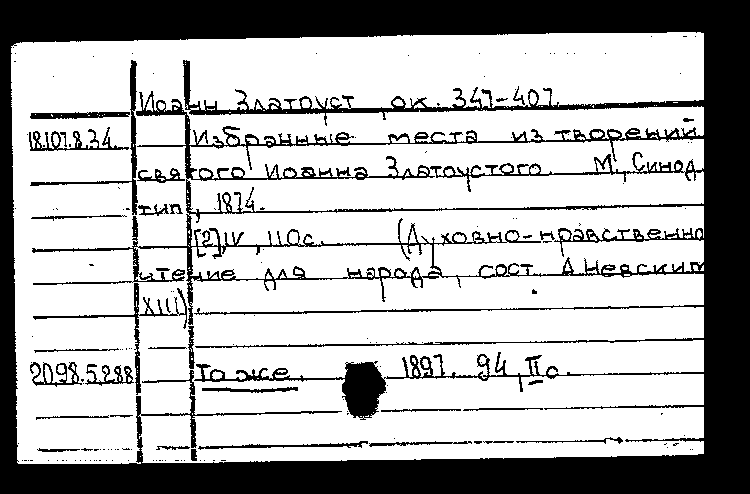 Иоанн Златоуст, ок. 347-407.
18.107.8.34. Избранные места из творений
святого Иоанна Златоустого. М., Синод.
тип., 1874.
[2]IV, 110с. (Духовно-нравственно
чтение для народа, сост. А Невским
XIII).
20.98.5.288 То же. 1897. 94, II с.